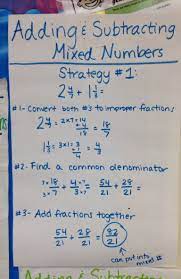 Adding & Subtracting
Mixed Numbers
Strategy #1:
2 4/7 + 1 1/3 =
#1- Convert both #'s to improper fractions
2 4/7 = 2×7=14 +4/7 = 18/7
1 1/3 = 3×1=3 +1/3 = 4/3
#2- Find a common denominator
3×18/3×7 + 4×7/3×7 = 54/21 + 28/21 =
#3- Add fractions together
54/21 + 28/21 = 82/21
can put into mixed #
Adding & Subtrac